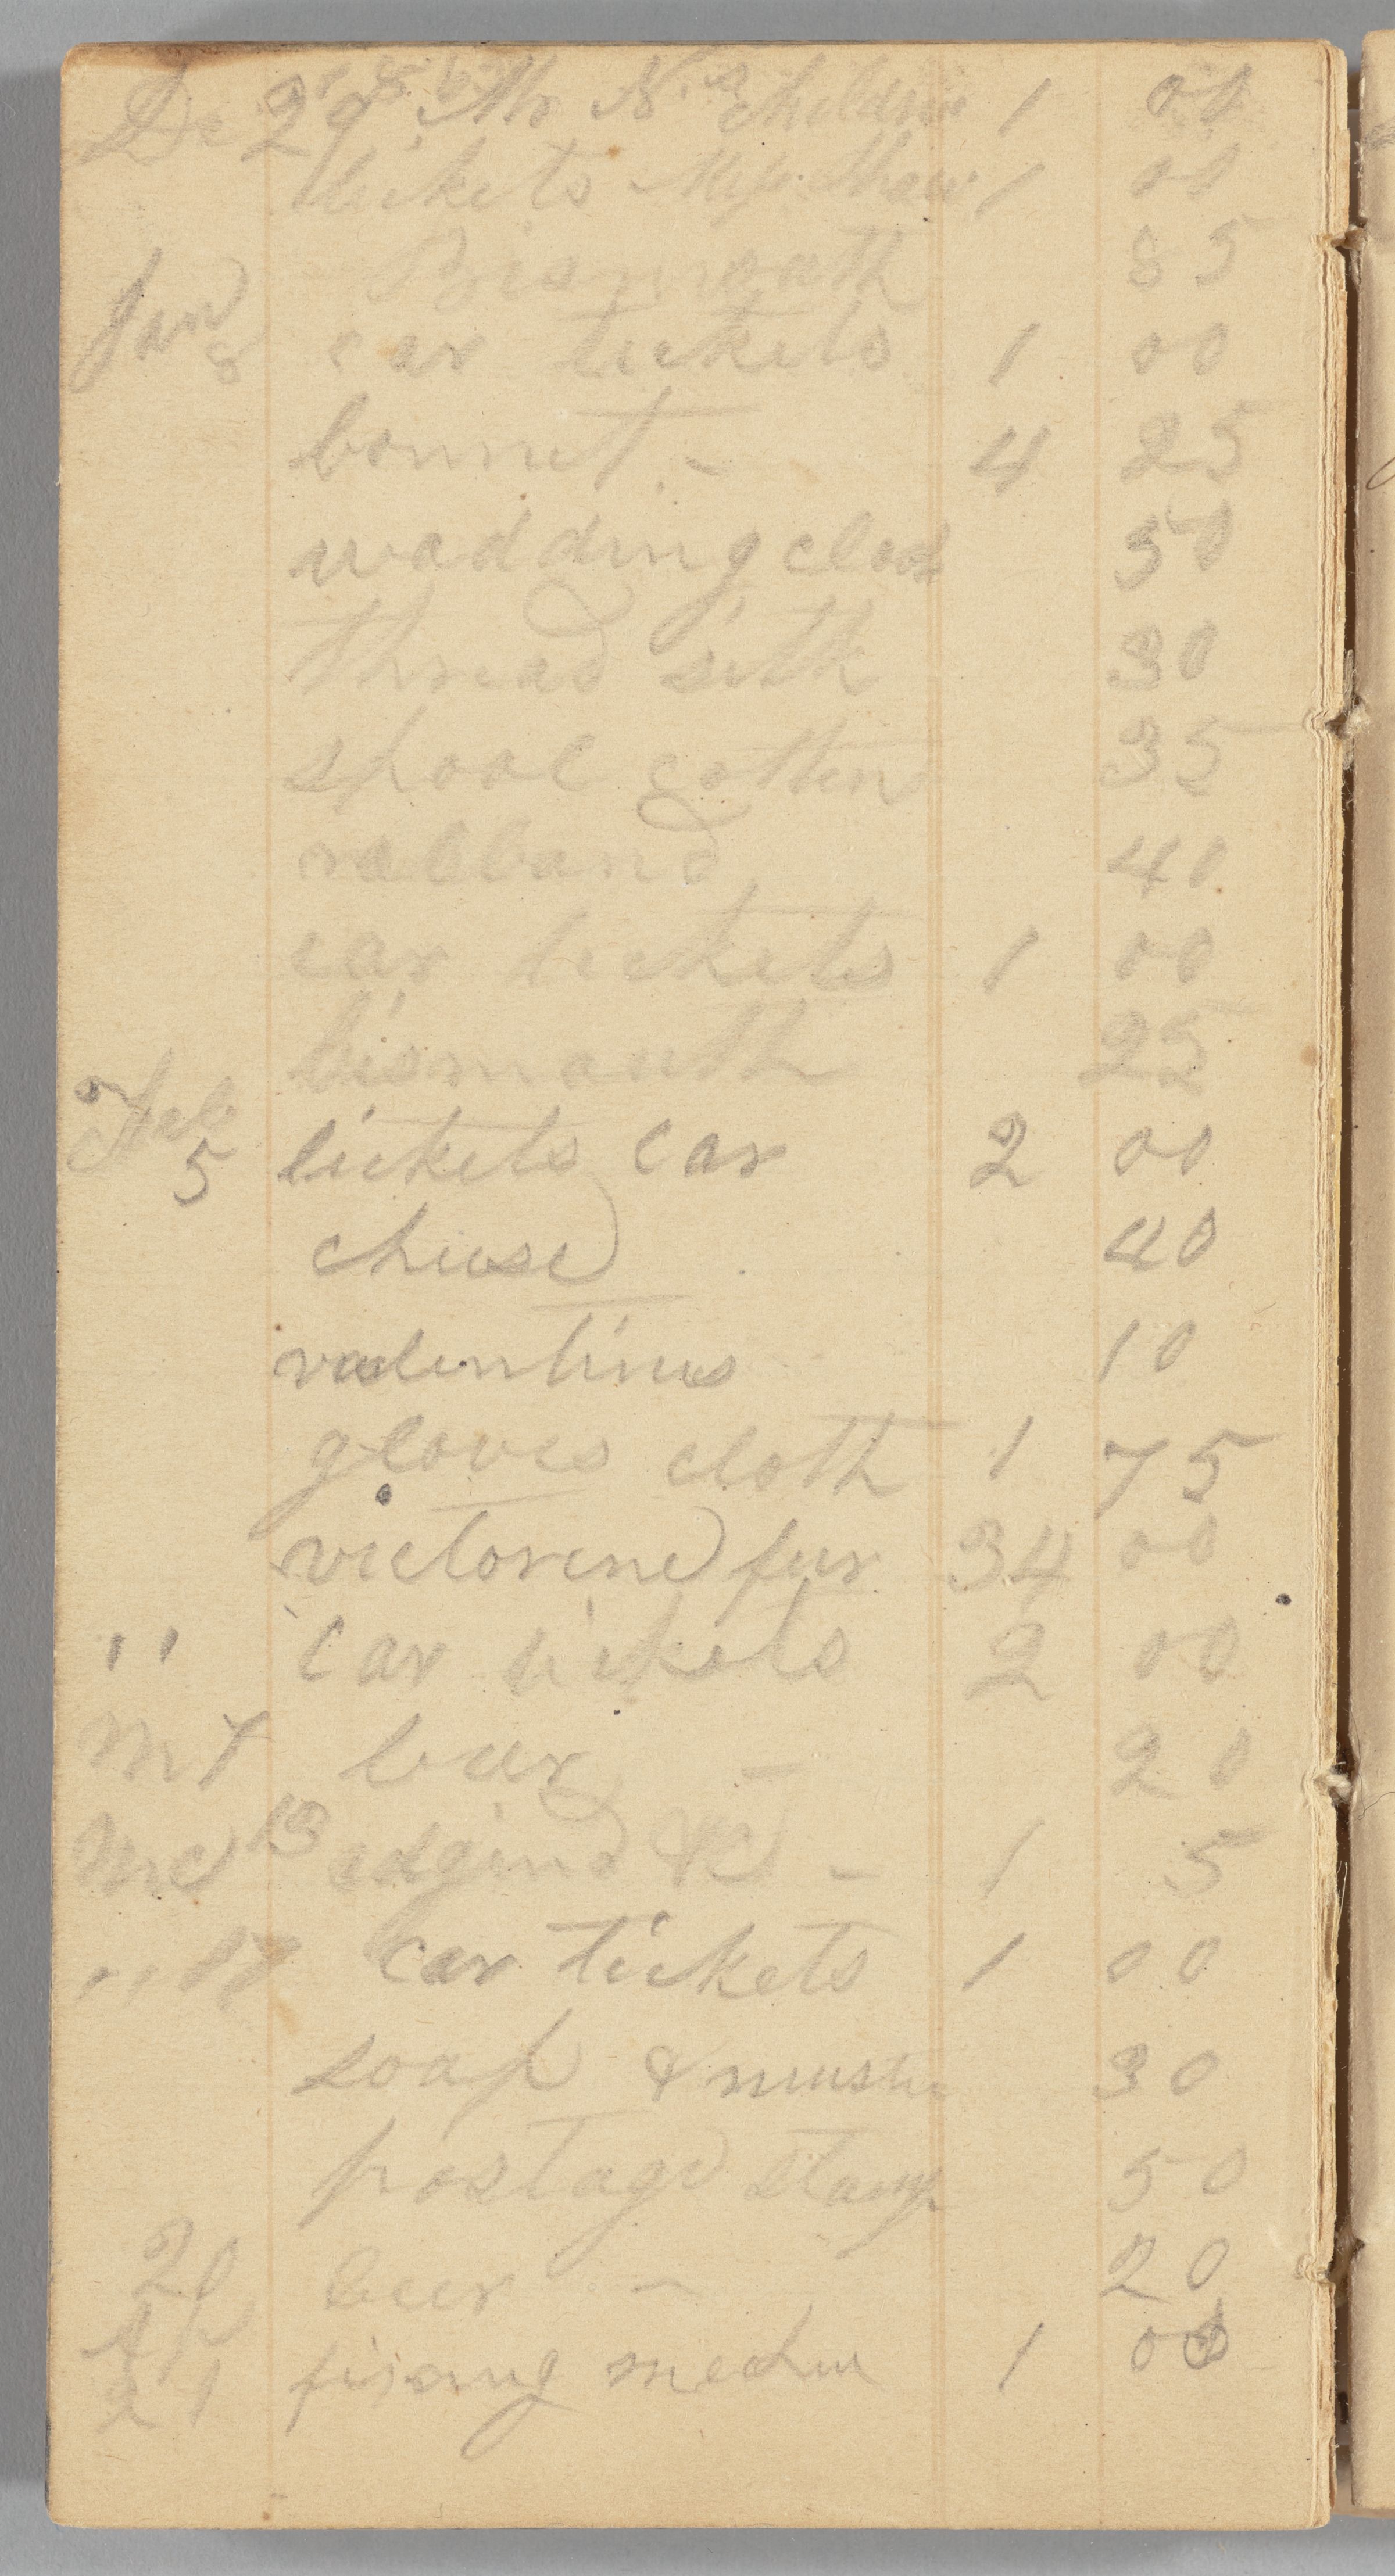 De 29 Mr N.s children 1 00
tickets Miss Shaw 1 00
Bismouth 85
Jan 8 car tickets 1 00
bonnet - 4 25
wadding cloak 50
thread silk 30
spool cotten 35
ribband 40
car tickets 1 00
bismouth 25
Feb 5 tickets car 2 00
cheese 40
valentines 10
gloves cloth 1 75
victorene fur 34 00
" car tickets 2 00
M 7 beer - 20
Mc 13 edgind &c - 1 5
" 17 car tickets 1 00
soap & 30
postage stamp 50
20 beer - 20
Ap 21 fixing 1 00